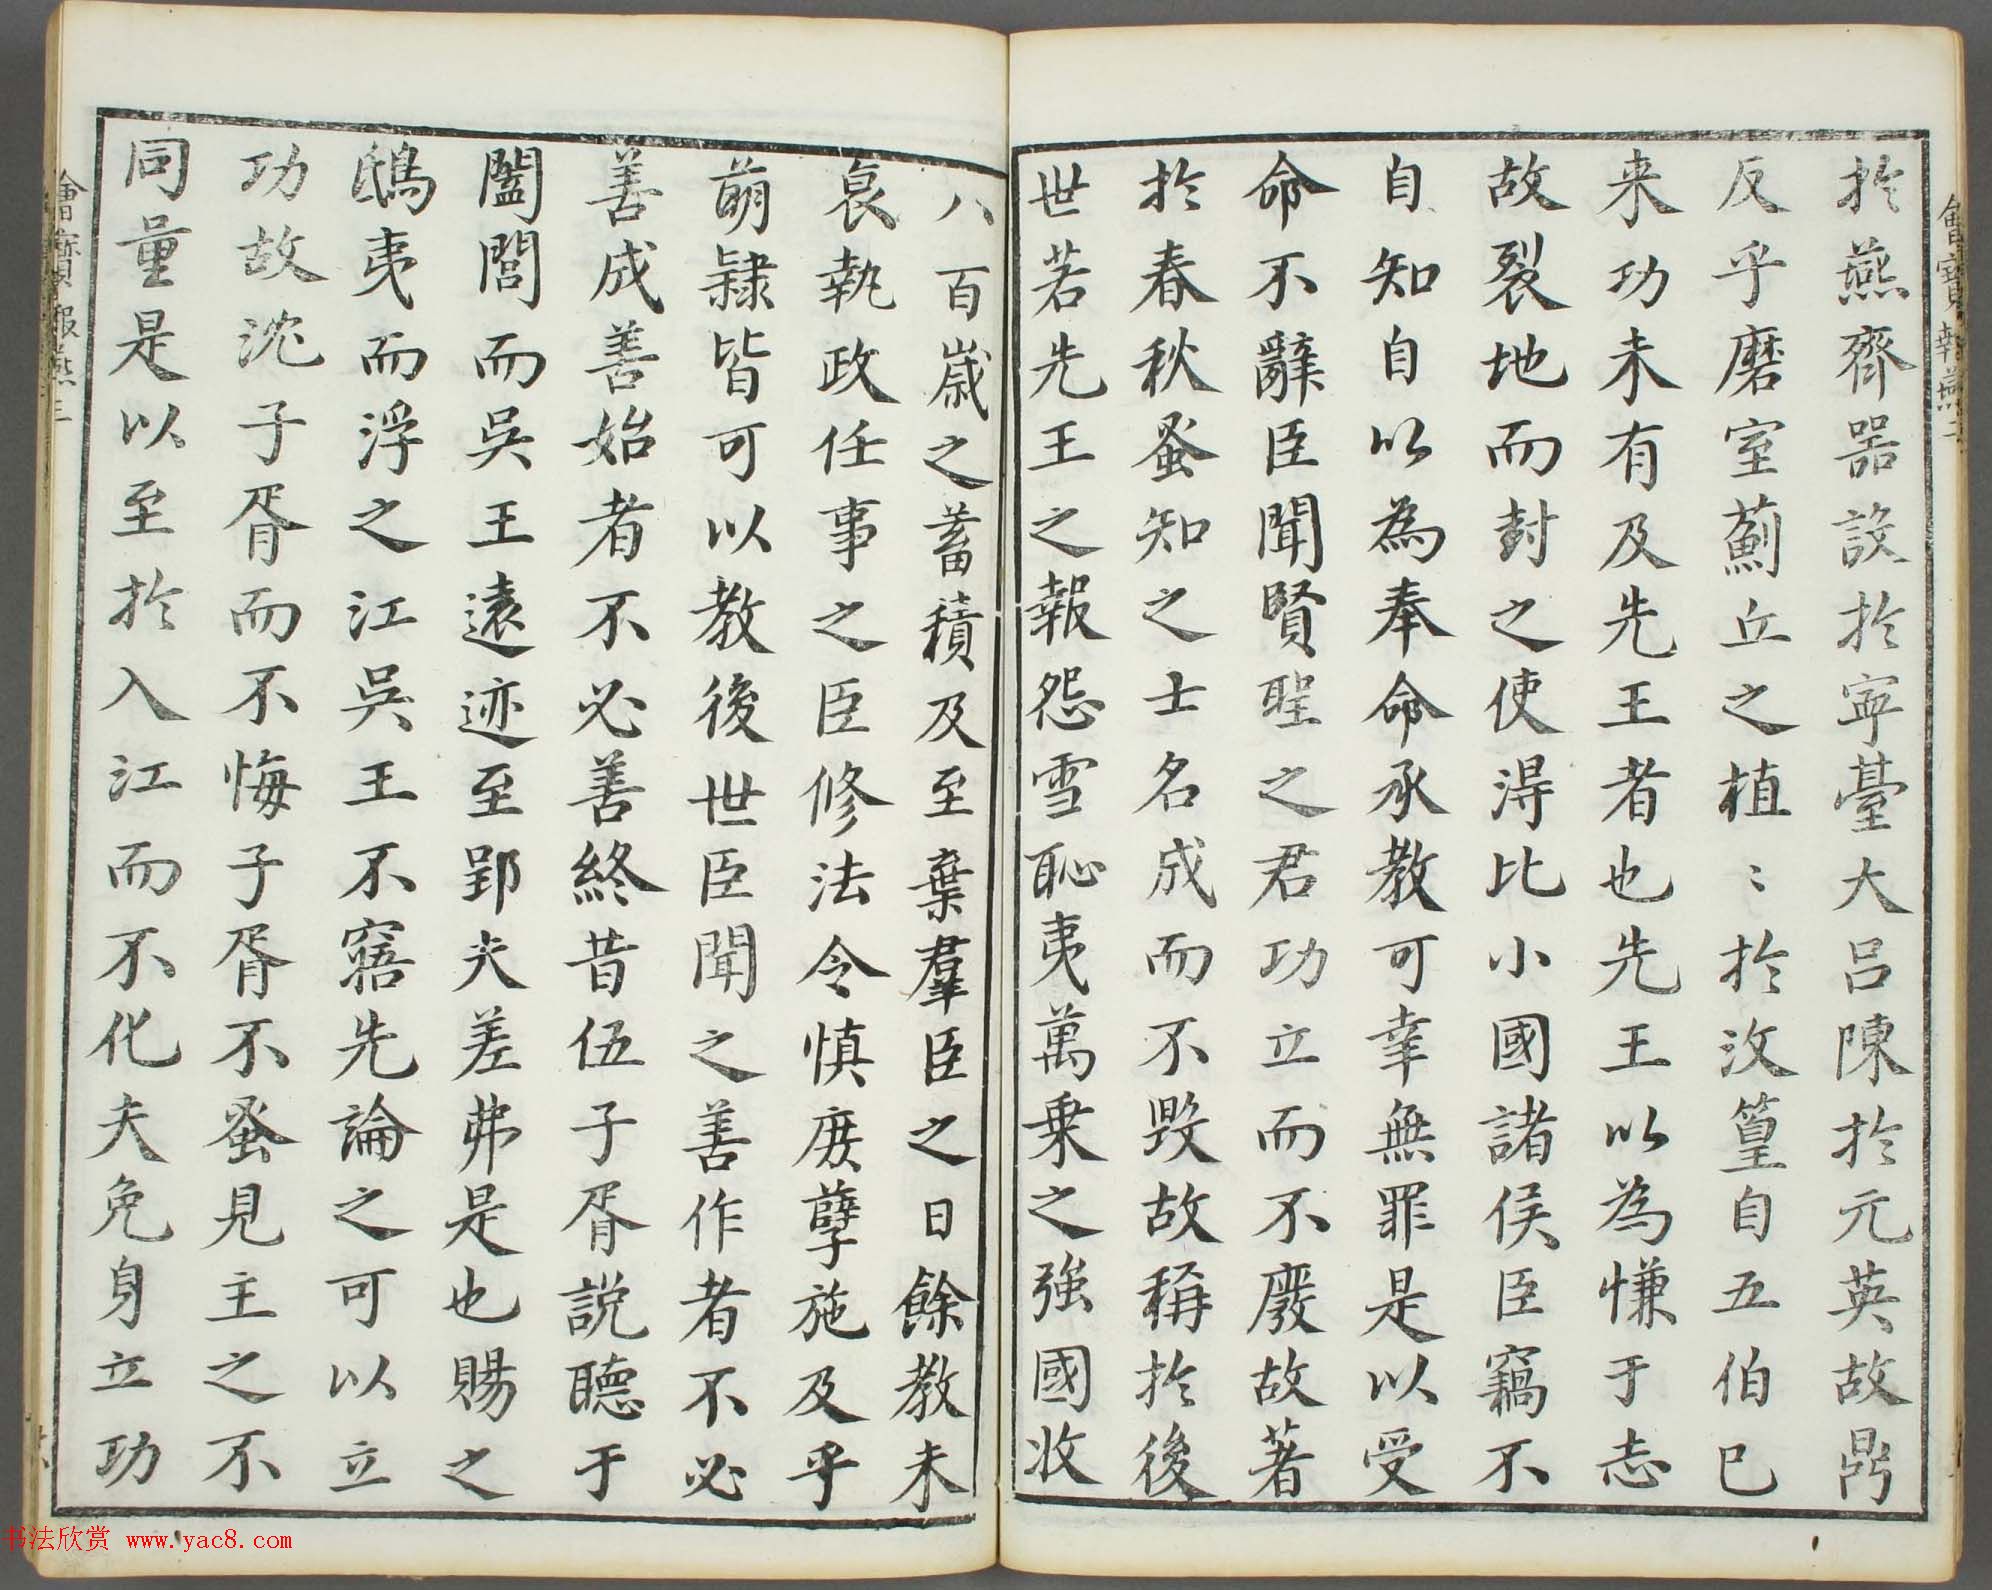 於燕齊器設於寧臺大呂陳於元英故鼎
反乎磨室薊丘之植〻於汶篁自五伯已
来功未有及先王者也先王以為慊于志
故裂地而封之使得比小國諸侯臣竊不
自知自以為奉命承教可幸無罪是以受
命不辭臣聞賢聖之君功立而不廢故著
於春秋蚤知之士名成而不毀故稱於後
世若先王之報怨雪恥夷萬乗之強國收
八百歲之蓄積及至棄羣臣之日餘教未
衰執政任事之臣修法令慎庶孽施及乎
萌隸皆可以教後世臣聞之善作者不必
善成善始者不必善終昔伍子胥説聽于
闔閭而吳王遠迹至郢夫差弗是也賜之
鴟夷而浮之江吳王不寤先論之可以立
功故沈子胥而不悔子胥不蚤見主之不
同量是以至於入江而不化夫免身立功
书法欣赏 www.yac8.com